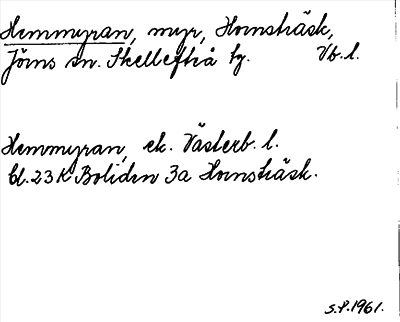 Hemmyran, myr, Hornsträsk,
Jörns sn. Skellefteå tg. Vb.l.
Hemmyran, ek. Västerb. l.
bl. 23 K Boliden 3a Hornsträsk.
S.P. 1961.